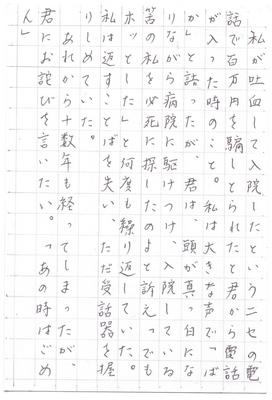 私が吐血し入院したというニセの電
話で百万円を騙しとられた君から電話
が入った時のこと。私は大きな声で「ば
か」と詰った。君は、頭が真っ白にな
りながら病院に駆けつけ、入院している
筈の私を必死に探したのよと訴え、でも
ホッとしたと何度も繰り返していった。
私は返すことばを失い、ただ受話器を握
りしめていた。
あれから十数年も経ってしまったが、
君にお詫びを言いたい。「あの時はごめ
ん」